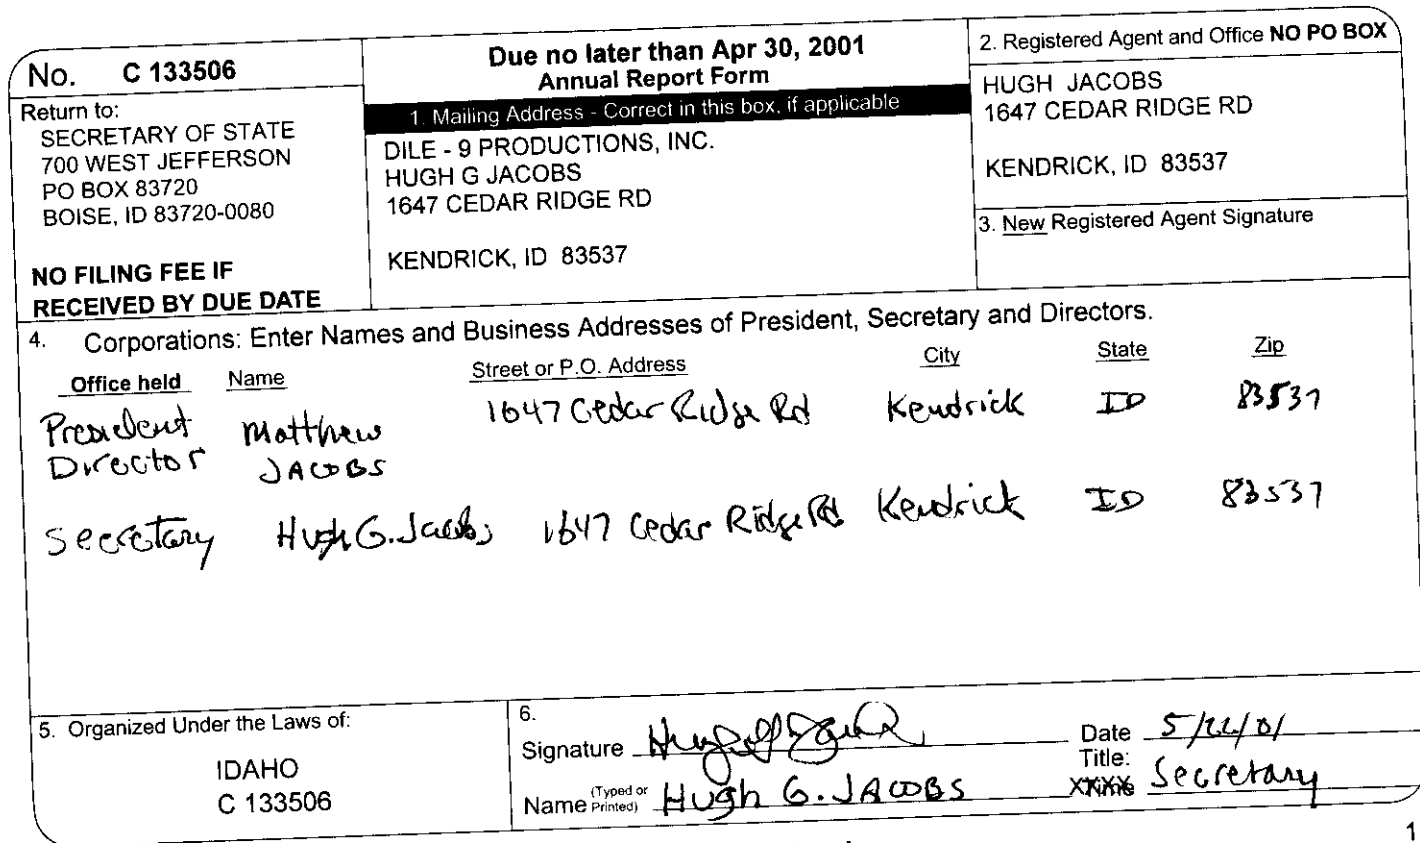 No. C 133506
Return to:
SECRETARY OF STATE
700 WEST JEFFERSON
PO BOX 83720
BOISE, ID 83720-0080
NO FILING FEE IF
RECEIVED BY DUE DATE
Due no later than Apr 30, 2001
Annual Report Form
1. Mailing Address - Correct in this box, if applicable
DILE - 9 PRODUCTIONS, INC.
HUGH G JACOBS
1647 CEDAR RIDGE RD
KENDRICK, ID 83537
2. Registered Agent and Office NO PO BOX
HUGH JACOBS
1647 CEDAR RIDGE RD
KENDRICK, ID 83537
3. New Registered Agent Signature
4. Corporations: Enter Names and Business Addresses of President, Secretary and Directors.
Office held Name Street or P.O. Address City State Zip
President Matthew 1647 Cedar Ridge Rd Kendrick ID 83537
Director JACOBS
Secretary Hugh G. Jacobs 1647 Cedar Ridge Rd Kendrick ID 83537
5. Organized Under the Laws of:
IDAHO
C 133506
6.
Signature Date 5/22/01
Title:
Name (Typed or Printed) Hugh G. JACOBS Secretary
1